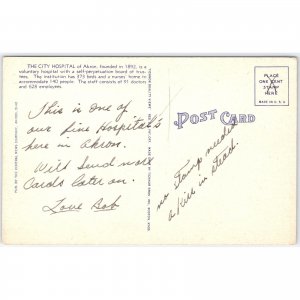 THE CITY HOSPITAL of Akron, founded in 1892, is a
voluntary hospital with a self-perpetuation board of trus-
tees. The institution has 375 beds and a nurses' home to
accommodate 140 people. The staff consists of 91 doctors
and 628 employees.
This is one of
our fine Hospital's
here in Akron.
Will Send more
Cards later on.
Love Bob
POST CARD
PLACE
ONE CENT
STAMP
HERE
MADE IN U. S. A.
no stamp needed
a Kiss in stead.